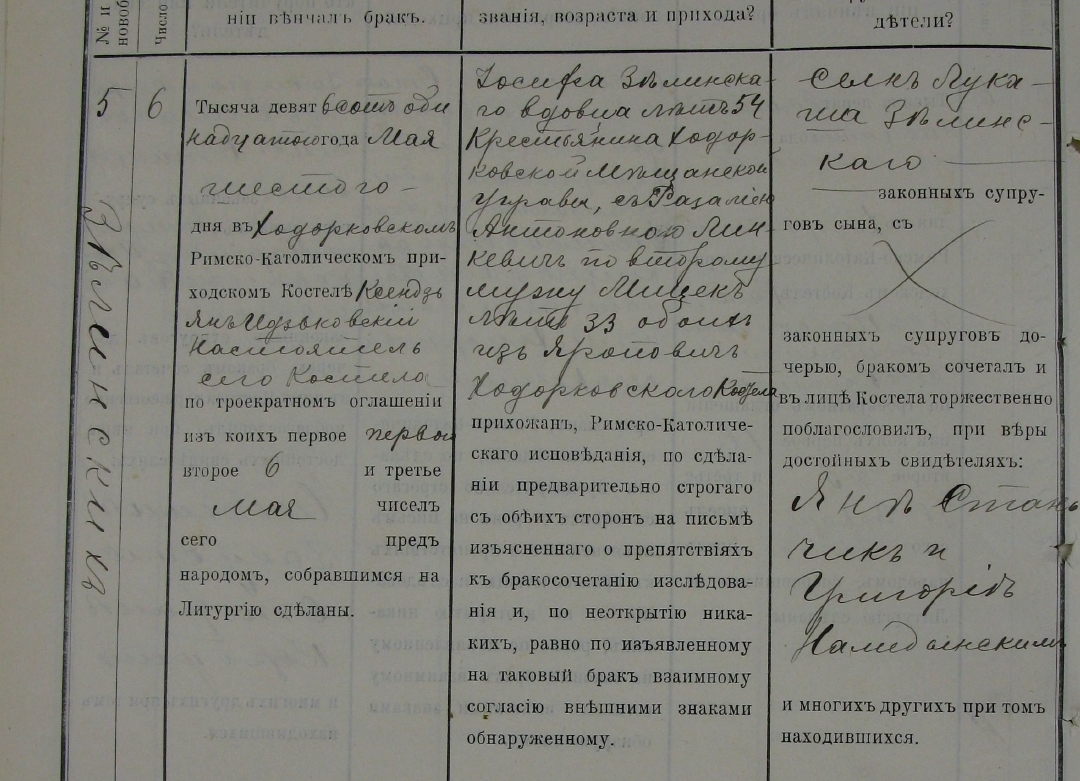 № и
новоб
Число
ніи вѣнчалъ бракъ.
званія, возраста и прихода?
дѣтели?
5
6
Зѣлинскихъ
Тысяча девятьсотъ оди
надцатого года Мая
шестого
дня въ Ходорковскомъ
Римско-Католическомъ при-
ходскомъ Костелѣ Ксендзъ
Янъ Идзьковскій
Настоятель
сего Костела
по троекратномъ оглашеніи
изъ коихъ первое первой
второе 6 и третье
Мая чиселъ
сего предъ
народомъ, собравшимся на
Литургію сдѣланы.
Іосифа Зѣлинска-
го вдовца лѣтъ 54
Крестьянина Ходор-
ковской Мѣщанской
Управы, съ Разаліею
Антоновною Лин-
кевичъ по второму
мужу Мицекъ
лѣтъ 33 обоихъ
изъ Яроповичъ
Ходорковского Костела
прихожанъ, Римско-Католиче-
скаго исповѣданія, по сдѣла-
ніи предварительно строгаго
съ обѣихъ сторонъ на письмѣ
изъясненнаго о препятствіяхъ
къ бракосочетанію изслѣдова-
нія и, по неоткрытію ника-
кихъ, равно по изъявленному
на таковый бракъ взаимному
согласію внѣшними знаками
обнаруженному.
сынъ Лука-
ша Зѣлинс-
каго
законныхъ супру-
говъ сына, съ
законныхъ супруговъ до-
черью, бракомъ сочеталъ и
въ лицѣ Костела торжественно
поблагословилъ, при вѣры
достойныхъ свидѣтеляхъ:
Янъ Стань
чикъ и
Григорій
и многихъ другихъ при томъ
находившихся.